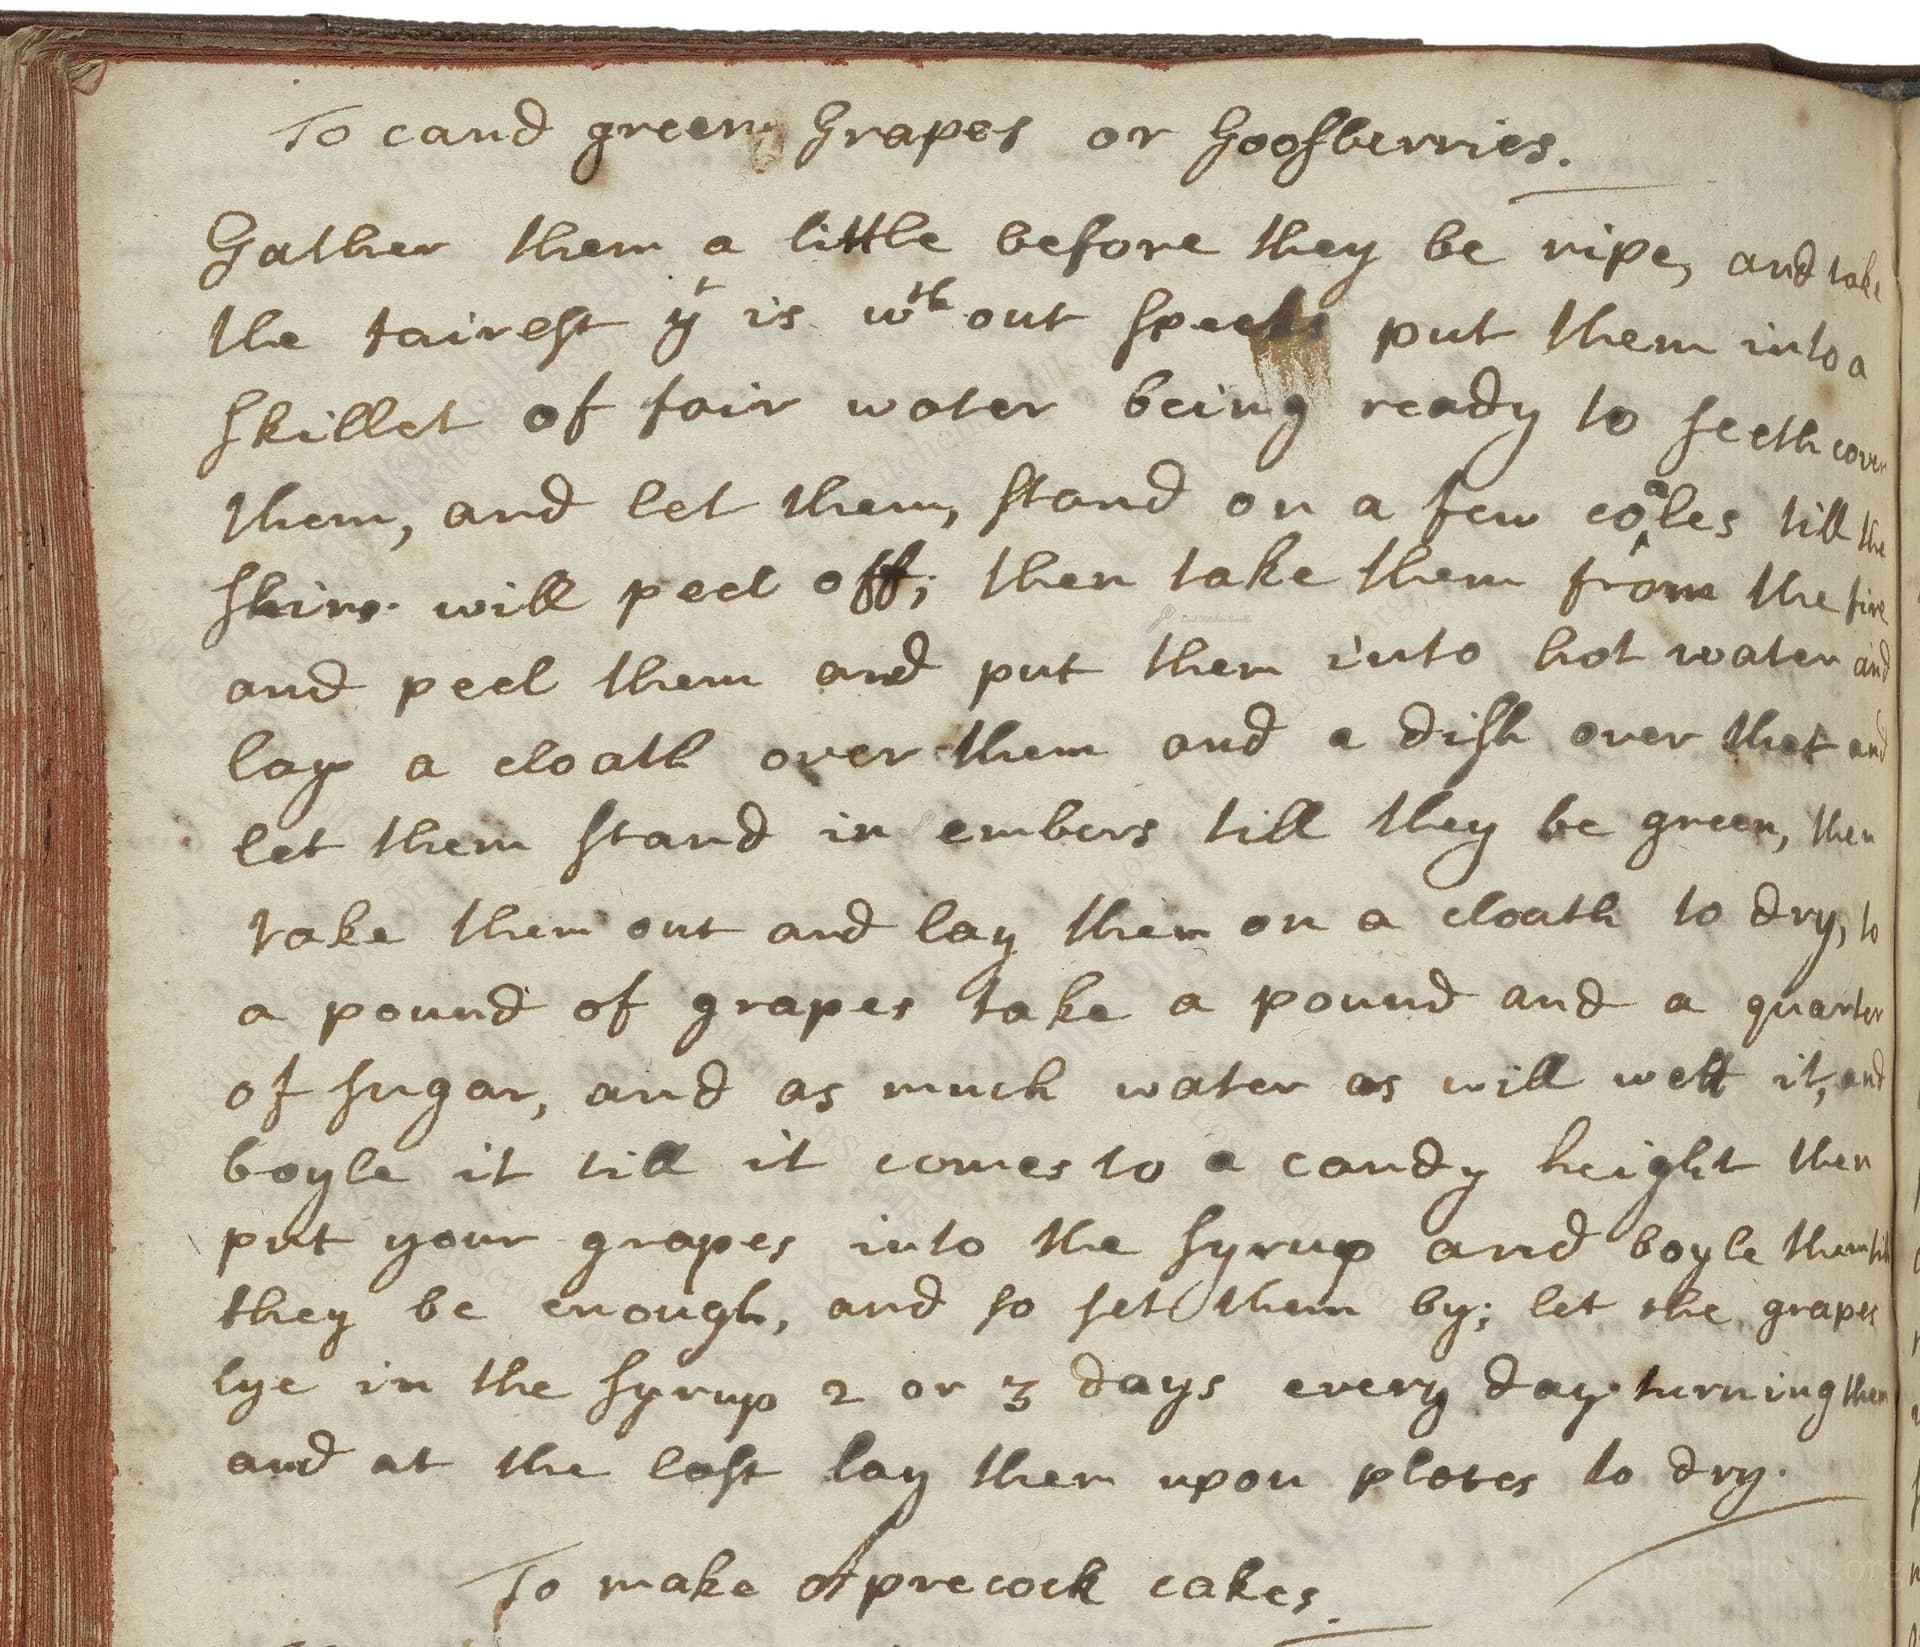 To cand green Grapes or Goosberries.
Gather them a little before they be ripe, and take
the fairest yt is wth out specks put them into a
skillet of fair water being ready to seeth cover
them, and let them, stand on a few coales till the
skins will peel off; then take them from the fire
and peel them and put them into hot water and
lay a cloath over them and a dish over that and
let them stand in embers till they be green, then
take them out and lay them on a cloath to dry, to
a pound of grapes take a pound and a quarter
of sugar, and as much water as will wett it, and
boyle it till it comes to a candy height then
put your grapes into the syrup and boyle them till
they be enough, and so set them by; let the grapes
lye in the syrup 2 or 3 days every day turning them
and at the last lay them upon plates to dry.
To make Aprecock cakes.